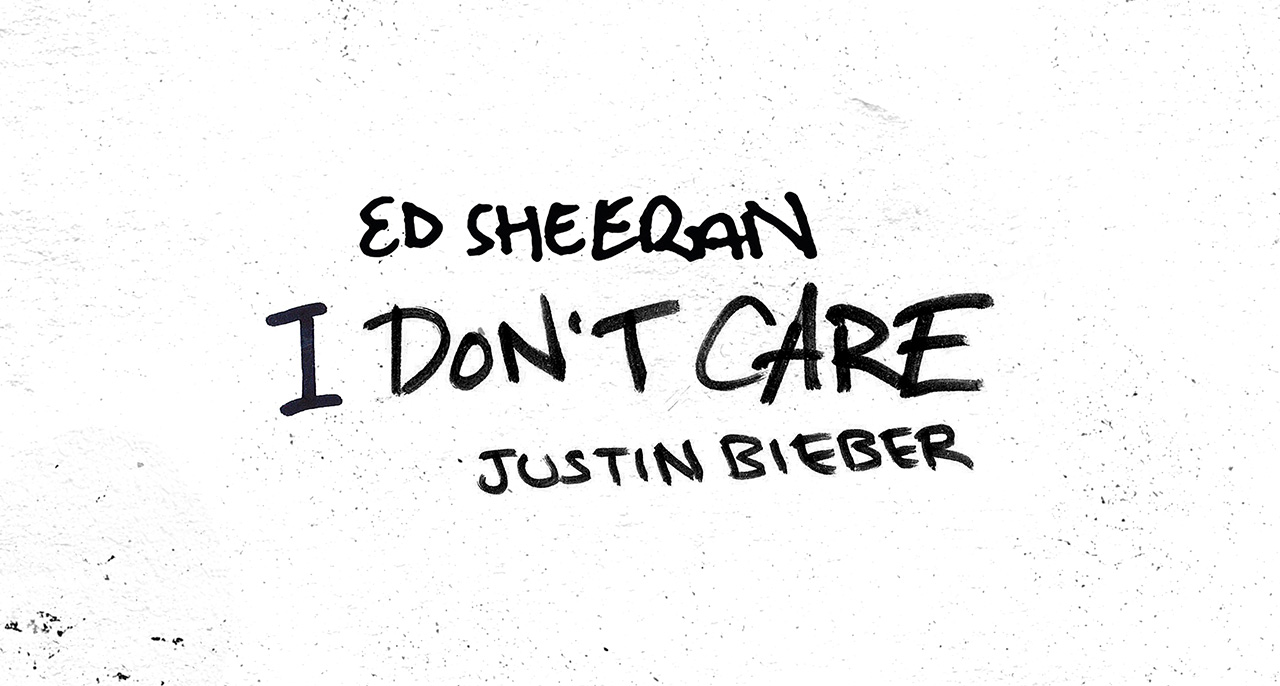 ED SHEERAN
I DON'T CARE
JUSTIN BIEBER